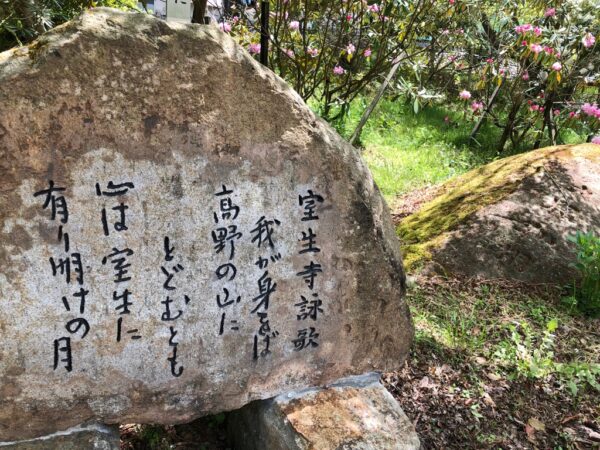 室生寺詠歌
我が身をば
高野の山に
とどむとも
心は室生に
有り明けの月